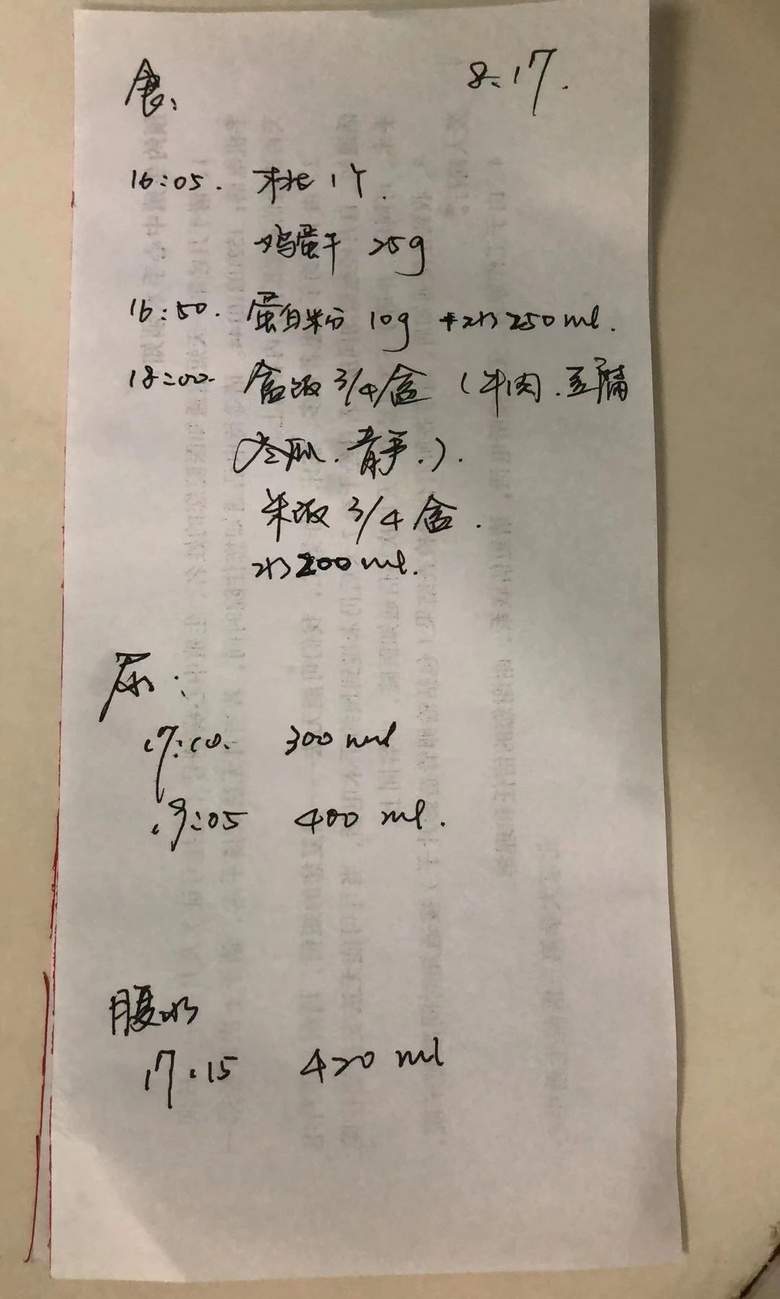 食: 8.17.
16:05. 桃 1个.
鸡蛋干 25g
16:50. 蛋白粉 10g +水250ml.
18:00. 盒饭 3/4盒 (牛肉.豆腐
冬瓜.青笋.).
米饭 3/4盒.
水200ml.
尿:
17:10. 300ml
19:05 400ml.
腹水
17:15 420ml